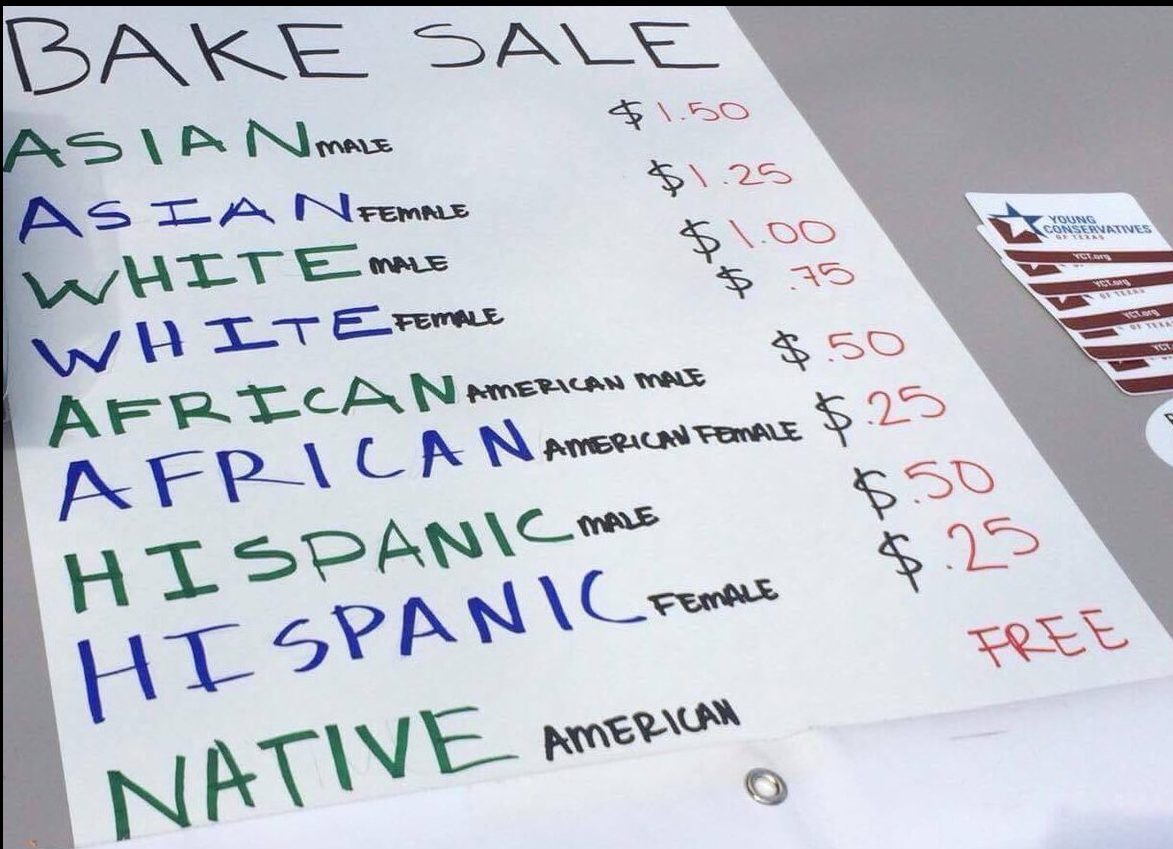 BAKE SALE
ASIAN MALE $1.50
ASIAN FEMALE $1.25
WHITE MALE $1.00
WHITE FEMALE $.75
AFRICAN AMERICAN MALE $.50
AFRICAN AMERICAN FEMALE $.25
HISPANIC MALE $.50
HISPANIC FEMALE $.25
NATIVE AMERICAN FREE
YOUNG
CONSERVATIVES
OF TEXAS
YCT.org
OF TEXAS
YCT.org
OF TEXAS
YCT.org
OF TEXAS
YCT.